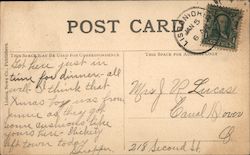 POST CARD
THIS SPACE MAY BE USED FOR CORRESPONDENCE
THIS SPACE FOR
LISBON, OHIO
JAN 5
Got here just in
time for dinner - all
well. I think that
Xmas box was from
Jennie as they got
some cushions like
yours here -
left town today
Mrs J R Lucas
Canal Dover
O
218 Second St